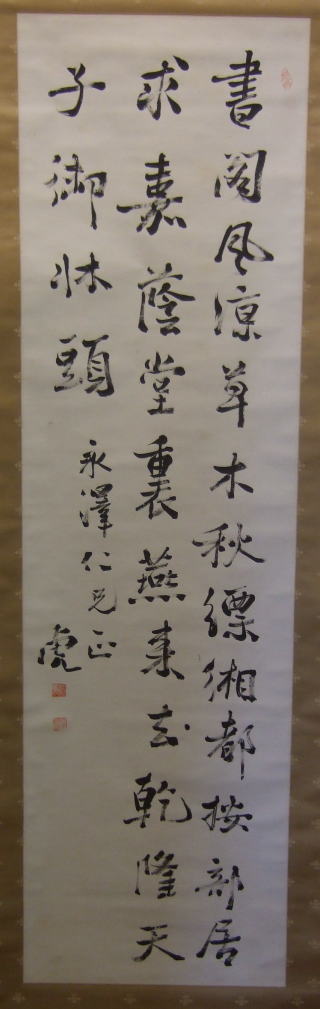 書閣風涼草木秋縹緗都按部居
求嘉蔭堂裏燕來去乾隆天
子御牀頭
永澤仁兄正
虎